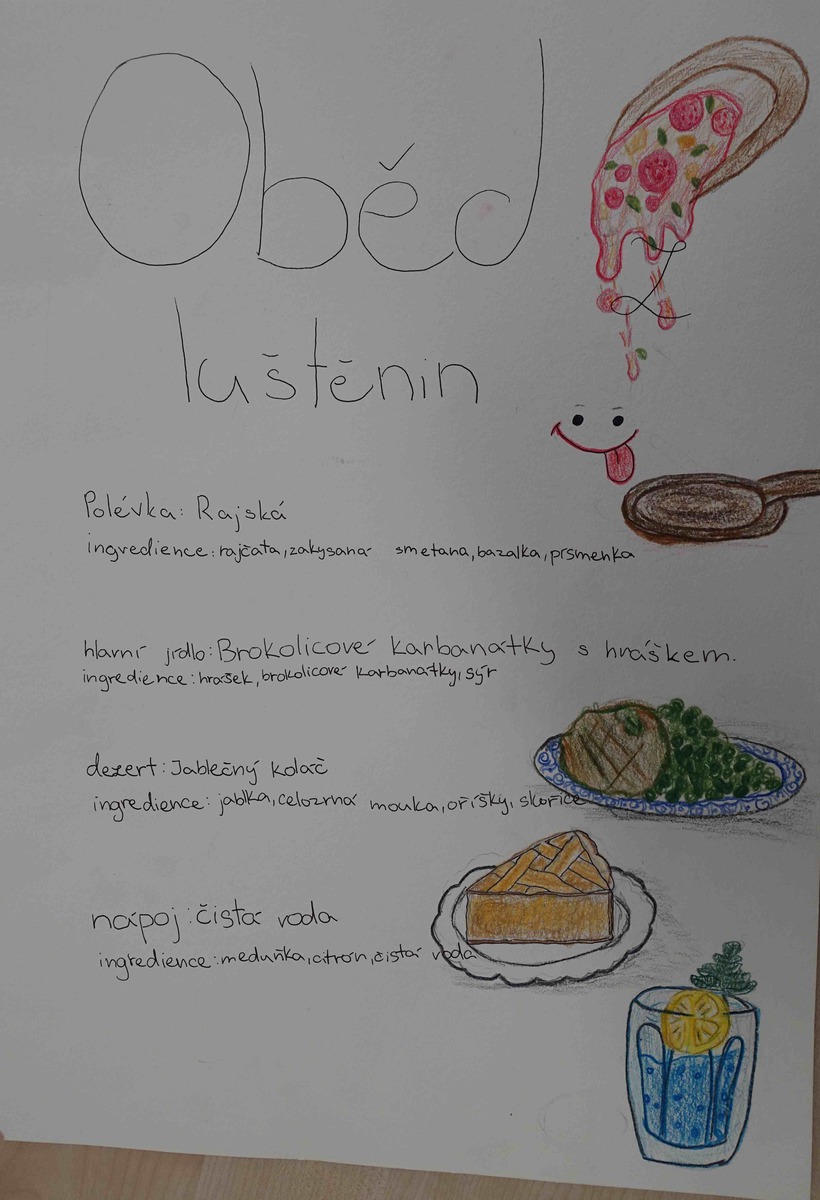 Oběd z
luštěnin
Polévka: Rajská
ingredience: rajčata, zakysaná smetana, bazalka, písmenka
hlavní jídlo: Brokolicové karbanátky s hráškem.
ingredience: hrášek, brokolicové karbanátky, sýr
dezert: Jablečný koláč
ingredience: jablka, celozrná mouka, oříšky, skořice
nápoj: čistá voda
ingredience: meduňka, citrón, čistá voda